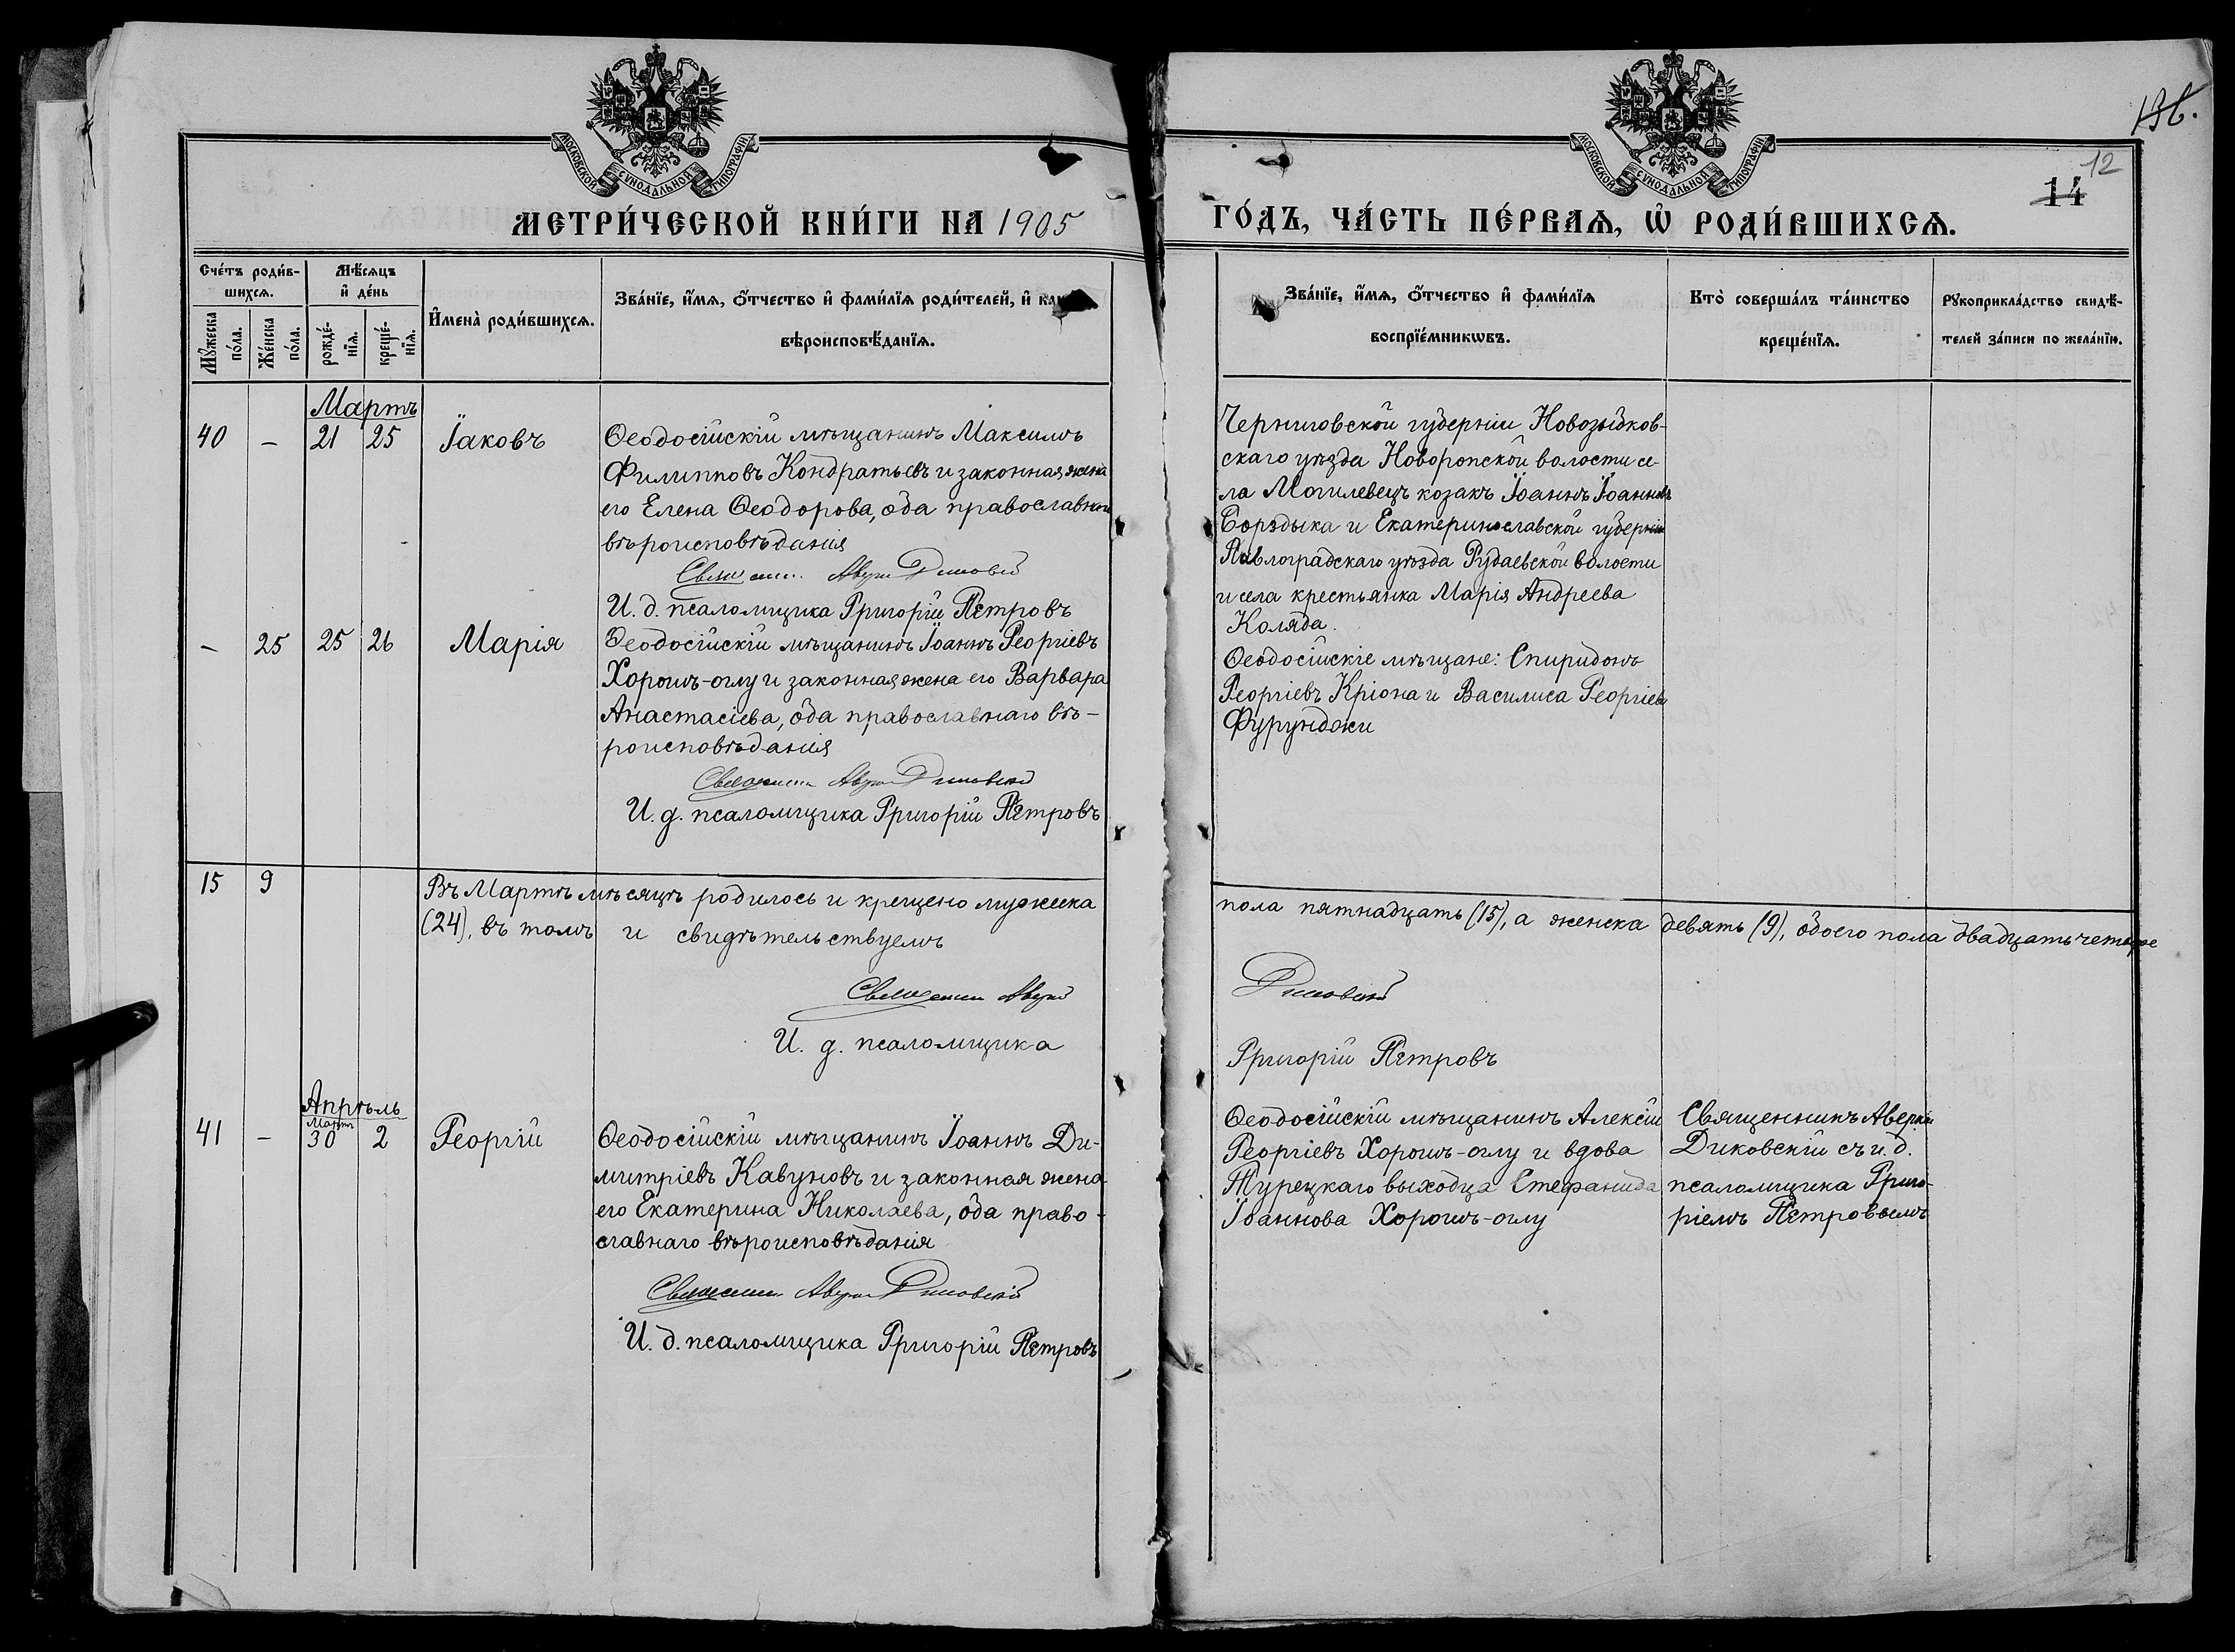 136.
12
14
МОСКОВСКОЙ СѴНОДАЛЬНОЙ ТИПОГРАФІИ
МОСКОВСКОЙ СѴНОДАЛЬНОЙ ТИПОГРАФІИ
МЕТРИ́ЧЕСКОЙ КНИ́ГИ НА 1905
ГО́ДЪ, ЧА́СТЬ ПЕ́РВАѦ, Ѡ҆ РОДИ́ВШИХСѦ.
Сче́тъ роди́в-
шихсѧ.
Мꙋ́жеска
по́ла.
Же́нска
по́ла.
Мѣ́сѧцъ
и҆ де́нь
рожде́-
нїѧ.
креще́-
нїѧ.
И҆мена̀ роди́вшихсѧ.
Зва́нїе, и҆́мѧ, ѻ҆́тчество и҆ фами́лїѧ роди́телей, и҆
вѣроисповѣ́данїѧ.
Зва́нїе, и҆́мѧ, ѻ҆́тчество и҆ фами́лїѧ
воспрїе́мникѡвъ.
Кто̀ соверша́лъ та́инство
креще́нїѧ.
Рꙋкоприкла́дство свидѣ́-
телей за́писи по жела́нїю.
Мартъ
40 – 21 25 Іаковъ
Ѳеодосійскій мѣщанинъ Максимъ
Филипповъ Кондратьевъ и законная жена
его Елена Ѳеодорова, оба православнаго
вѣроисповѣданія
И. д. псаломщика Григорій Петровъ
Черниговской губерніи Новозыбков-
скаго уѣзда Новоропской волости се-
ла Могилевецъ козакъ Іоаннъ Іоанновъ
Борздыка и Екатеринославской губерніи
Павлоградскаго уѣзда Рудаевской волости
и села крестьянка Марія Андреева
Коляда.
– 25 25 26 Марія
Ѳеодосійскій мѣщанинъ Іоаннъ Георгіевъ
Хорошъ-оглу и законная жена его Варвара
Анастасіева, оба православнаго вѣ-
роисповѣданія
И. д. псаломщика Григорій Петровъ
Ѳеодосійскіе мѣщане: Спиридонъ
Георгіевъ Кріона и Василиса Георгіева
Фурунджи
15 9
Въ Мартѣ мѣсяцѣ родилось и крещено мужеска пола пятнадцать (15), а женска девять (9), обоего пола двадцать четыре
(24), въ томъ и свидѣтельствуемъ
Священникъ Аверкій Диковскій
И. д. псаломщика Григорій Петровъ
Апрѣль
Мартъ
41 – 30 2 Георгій
Ѳеодосійскій мѣщанинъ Іоаннъ Ди-
митріевъ Кавуновъ и законная жена
его Екатерина Николаева, оба право-
славнаго вѣроисповѣданія
Священникъ Аверкій Диковскій
И. д. псаломщика Григорій Петровъ
Ѳеодосійскій мѣщанинъ Алексій
Георгіевъ Хорошъ-оглу и вдова
Турецкаго выходца Стефанида
Іоаннова Хорошъ-оглу
Священникъ Аверкій
Диковскій съ и. д.
псаломщика Григо-
ріемъ Петровымъ